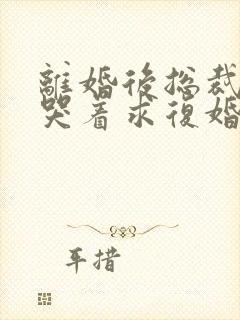 離婚後總裁
哭着求復婚
耳措